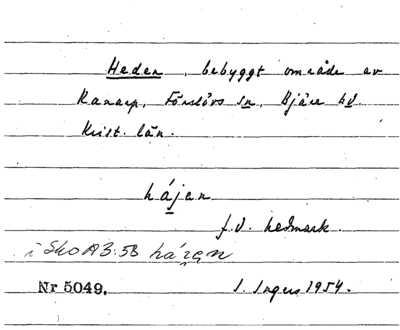 Heden, bebyggt område av
Kanarp, Förslövs sn, Bjäre hd.
Krist. län.
hájen
f.d. hedmark.
i SkoA3:58 hájen
Nr 5049.
I. Ingers 1954.